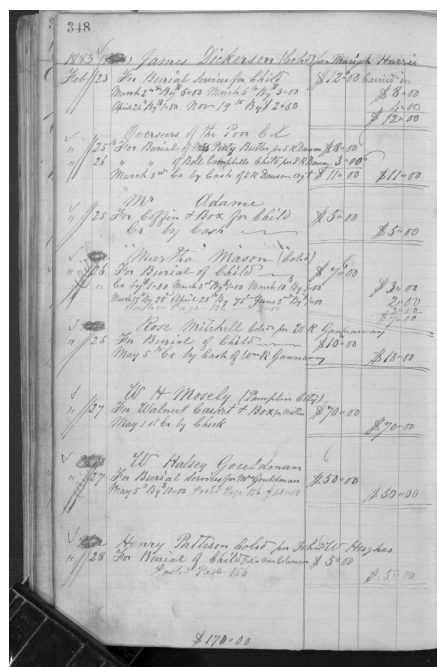 348
1883 James Dickerson Cold for Mariah Harris
Feb 23 For Burial Services for Child $12"00 Carried in
March 2nd By $5"00 March 6th By $3"00 $8"00
April 24 By $1"50 Nov 19th By $2"50 4"00
$12"00
Overseers of the Poor C L
" 25 For Burial of Miss Petty Butler per S R Dawson $8"00
" 26 " " of Bell Campbells Child per S R Dawson 3"00
March 3rd Cr by Cash of S R Dawson agt $11"00 $11"00
Mr Adame
" 25 For Coffin & Box for Child $5"00
Cr by Cash $5"00
"Martha" Mason (Cold)
" 26 For Burial of Child $7"00
Cr by $1"00 March 3rd By $1"00 March 10 By $1"00 $3"00
March 17 By 25 April 28th By 75 June 2nd By $1"00 2"00
Posted Page 151 2"00
$7"00
Rose Mitchell Cold per W R Gannaway
" 26 For Burial of Child $10"00
May 5th Cr by Cash of Wm R Gannaway $10"00
W H Mosely (Pamplin City)
" 27 For Walnut Casket & Box for Mother $70"00
May 1st Cr by Check $70"00
W Halsey Gouldman
" 27 For Burial Services for Mr Gouldman $50"00
May 5th By $10"00 Posted Page 156 $40"00 $50"00
Henry Patteson Cold per John W Hughes
" 28 For Burial of Child $5"00
Posted Page 156 $5"00
$170"00